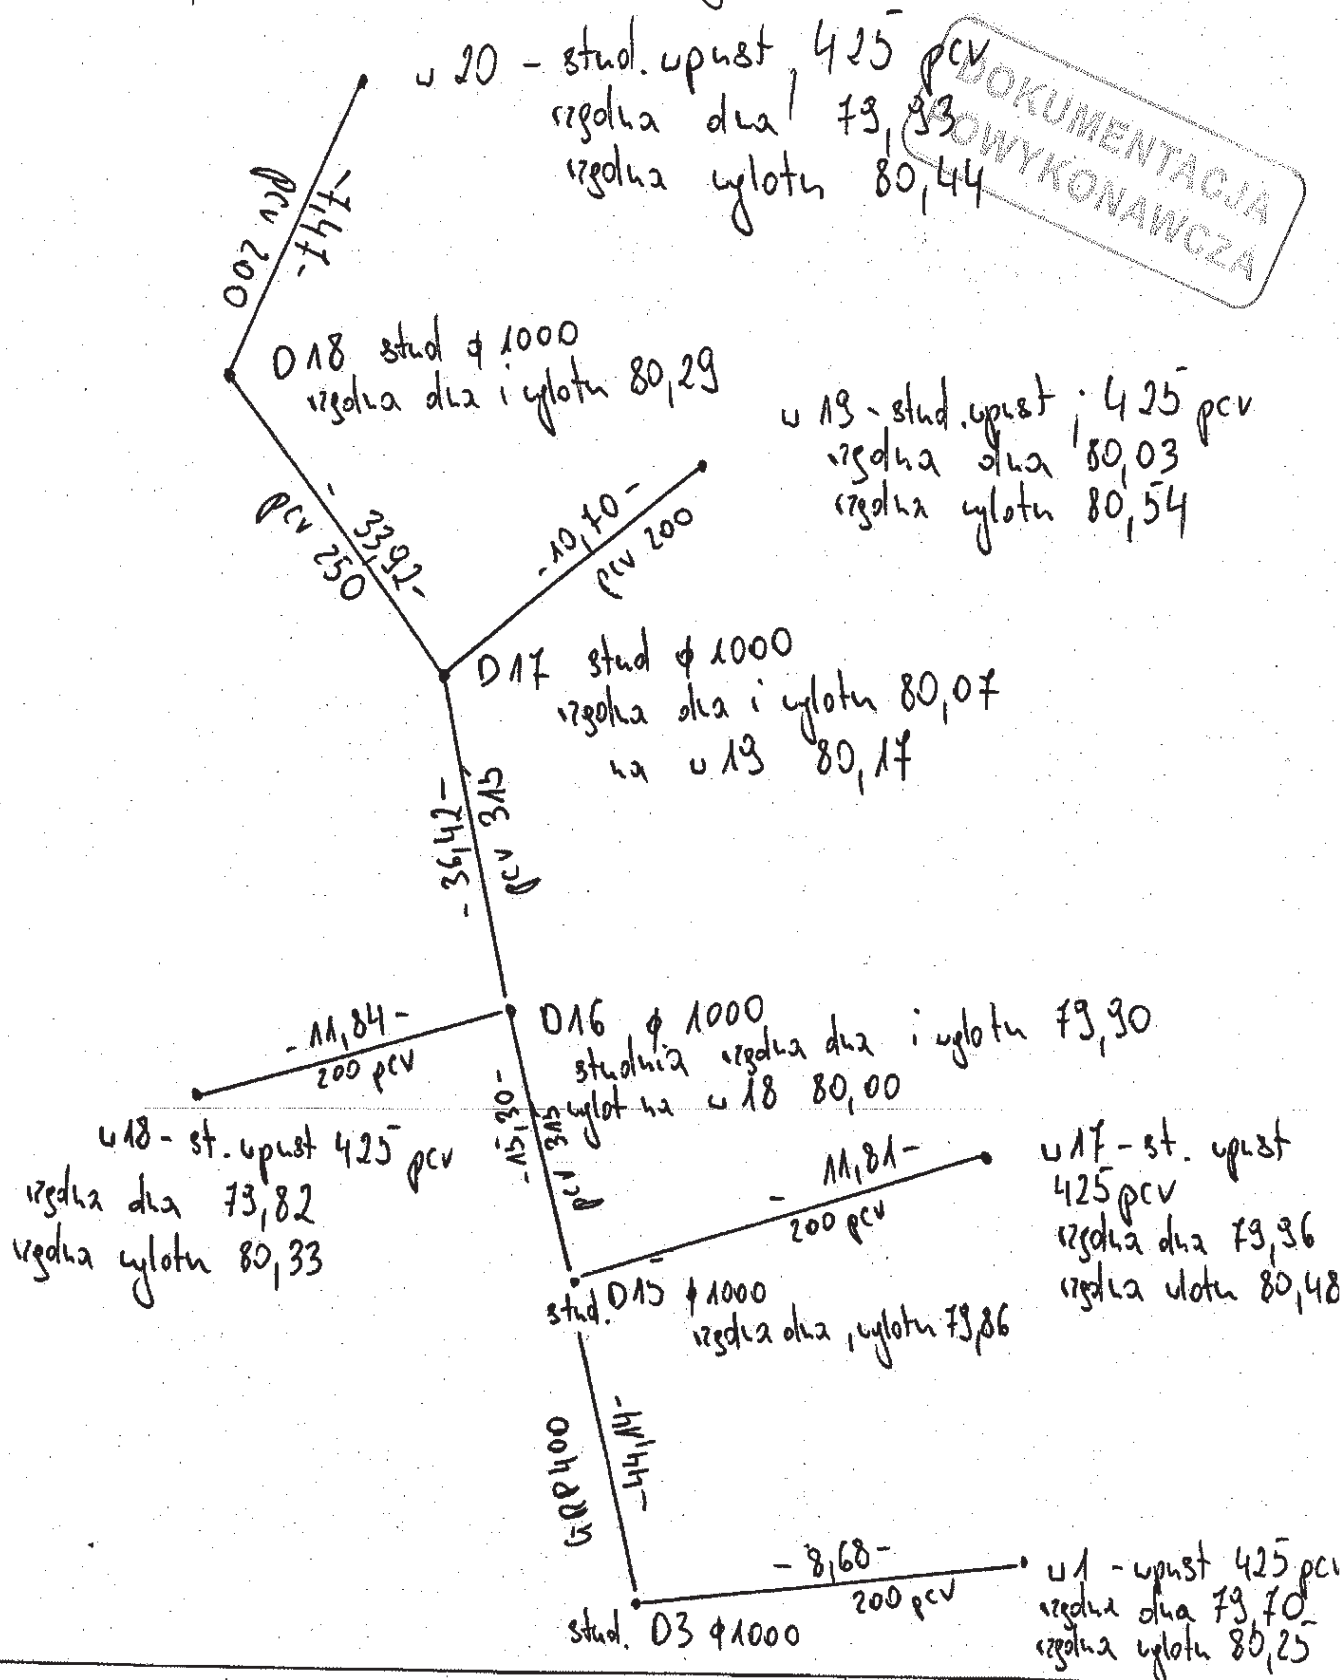 w 20 - stud. wpust, 425 pcv
rzędna dna 79,93
rzędna wylotu 80,44
DOKUMENTACJA
POWYKONAWCZA
-7,47-
pcv 200
D18 stud ϕ 1000
rzędna dna i wylotu 80,29
w 19 - stud. wpust, 425 pcv
rzędna dna 80,03
rzędna wylotu 80,54
- 33,92 -
pcv 250
- 10,70 -
pcv 200
D17 stud ϕ 1000
rzędna dna i wylotu 80,07
na w 19 80,17
- 36,42 -
pcv 315
- 11,84 -
200 pcv
D16 ϕ 1000
studnia rzędna dna i wylotu 79,90
wylot na w 18 80,00
w18 - st. wpust 425 pcv
rzędna dna 79,82
rzędna wylotu 80,33
- 15,30 -
pcv 315
- 11,81 -
200 pcv
w 17 - st. wpust
425 pcv
rzędna dna 79,96
rzędna wlotu 80,48
stud. D15 ϕ 1000
rzędna dna, wylotu 79,86
GRP 400
- 44,14 -
- 8,68 -
200 pcv
w 1 - wpust 425 pcv
rzędna dna 79,70
rzędna wylotu 80,25
stud. D3 ϕ 1000